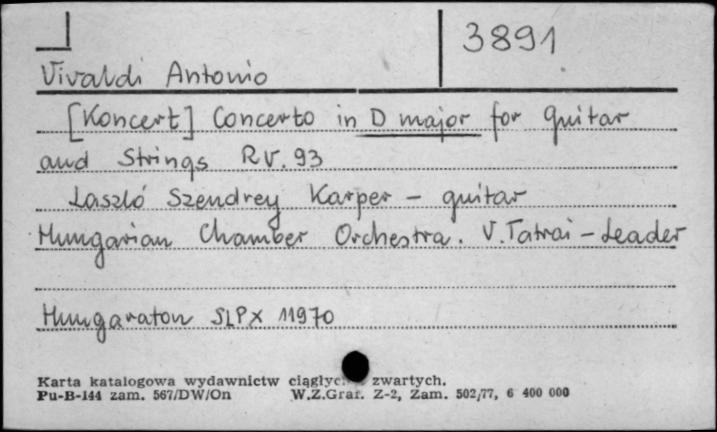 3891
Vivaldi Antonio
[Koncert] Concerto in D major for guitar
and Strings RV. 93
László Szendrey Karper – guitar
Hungarian Chamber Orchestra. V. Tatrai – Leader
Hungaraton SLPX 11970
Karta katalogowa wydawnictw zwartych.
Pu-B-144 zam. 567/DW/On W.Z.Graf. Z-2, Zam. 502/77, 6 400 000